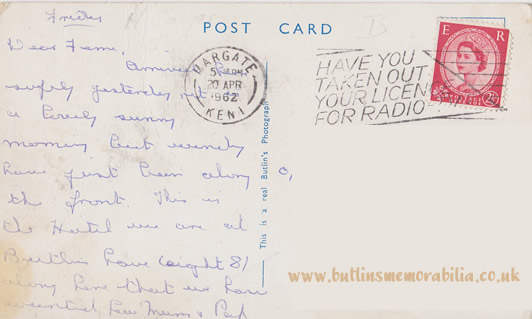 Friday
POST CARD
Dear
Arrived
safely yesterday
a lovely sunny
morning but windy
have just been along
the front. This is
the Hotel we are at
Butlins have (eight 8)
along here that we have
Mum &
MARGATE
20 APR
1962
KENT
HAVE YOU
TAKEN OUT
YOUR LICENCE
FOR RADIO
E R
2½D
This is a real Butlin's Photograph
www.butlinsmemorabilia.co.uk